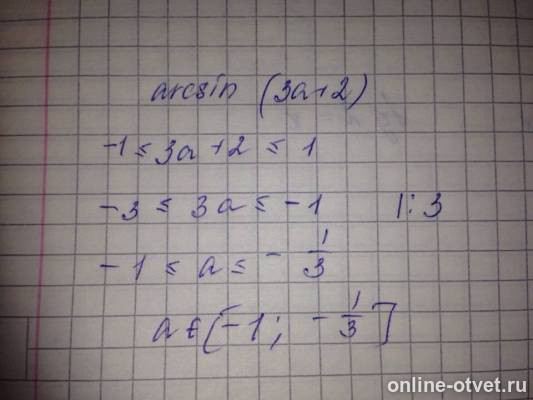 arcsin (3a+2)
-1 ≤ 3a+2 ≤ 1
-3 ≤ 3a ≤ -1 |:3
-1 ≤ a ≤ -1/3
a ∈ [-1; -1/3]
online-otvet.ru